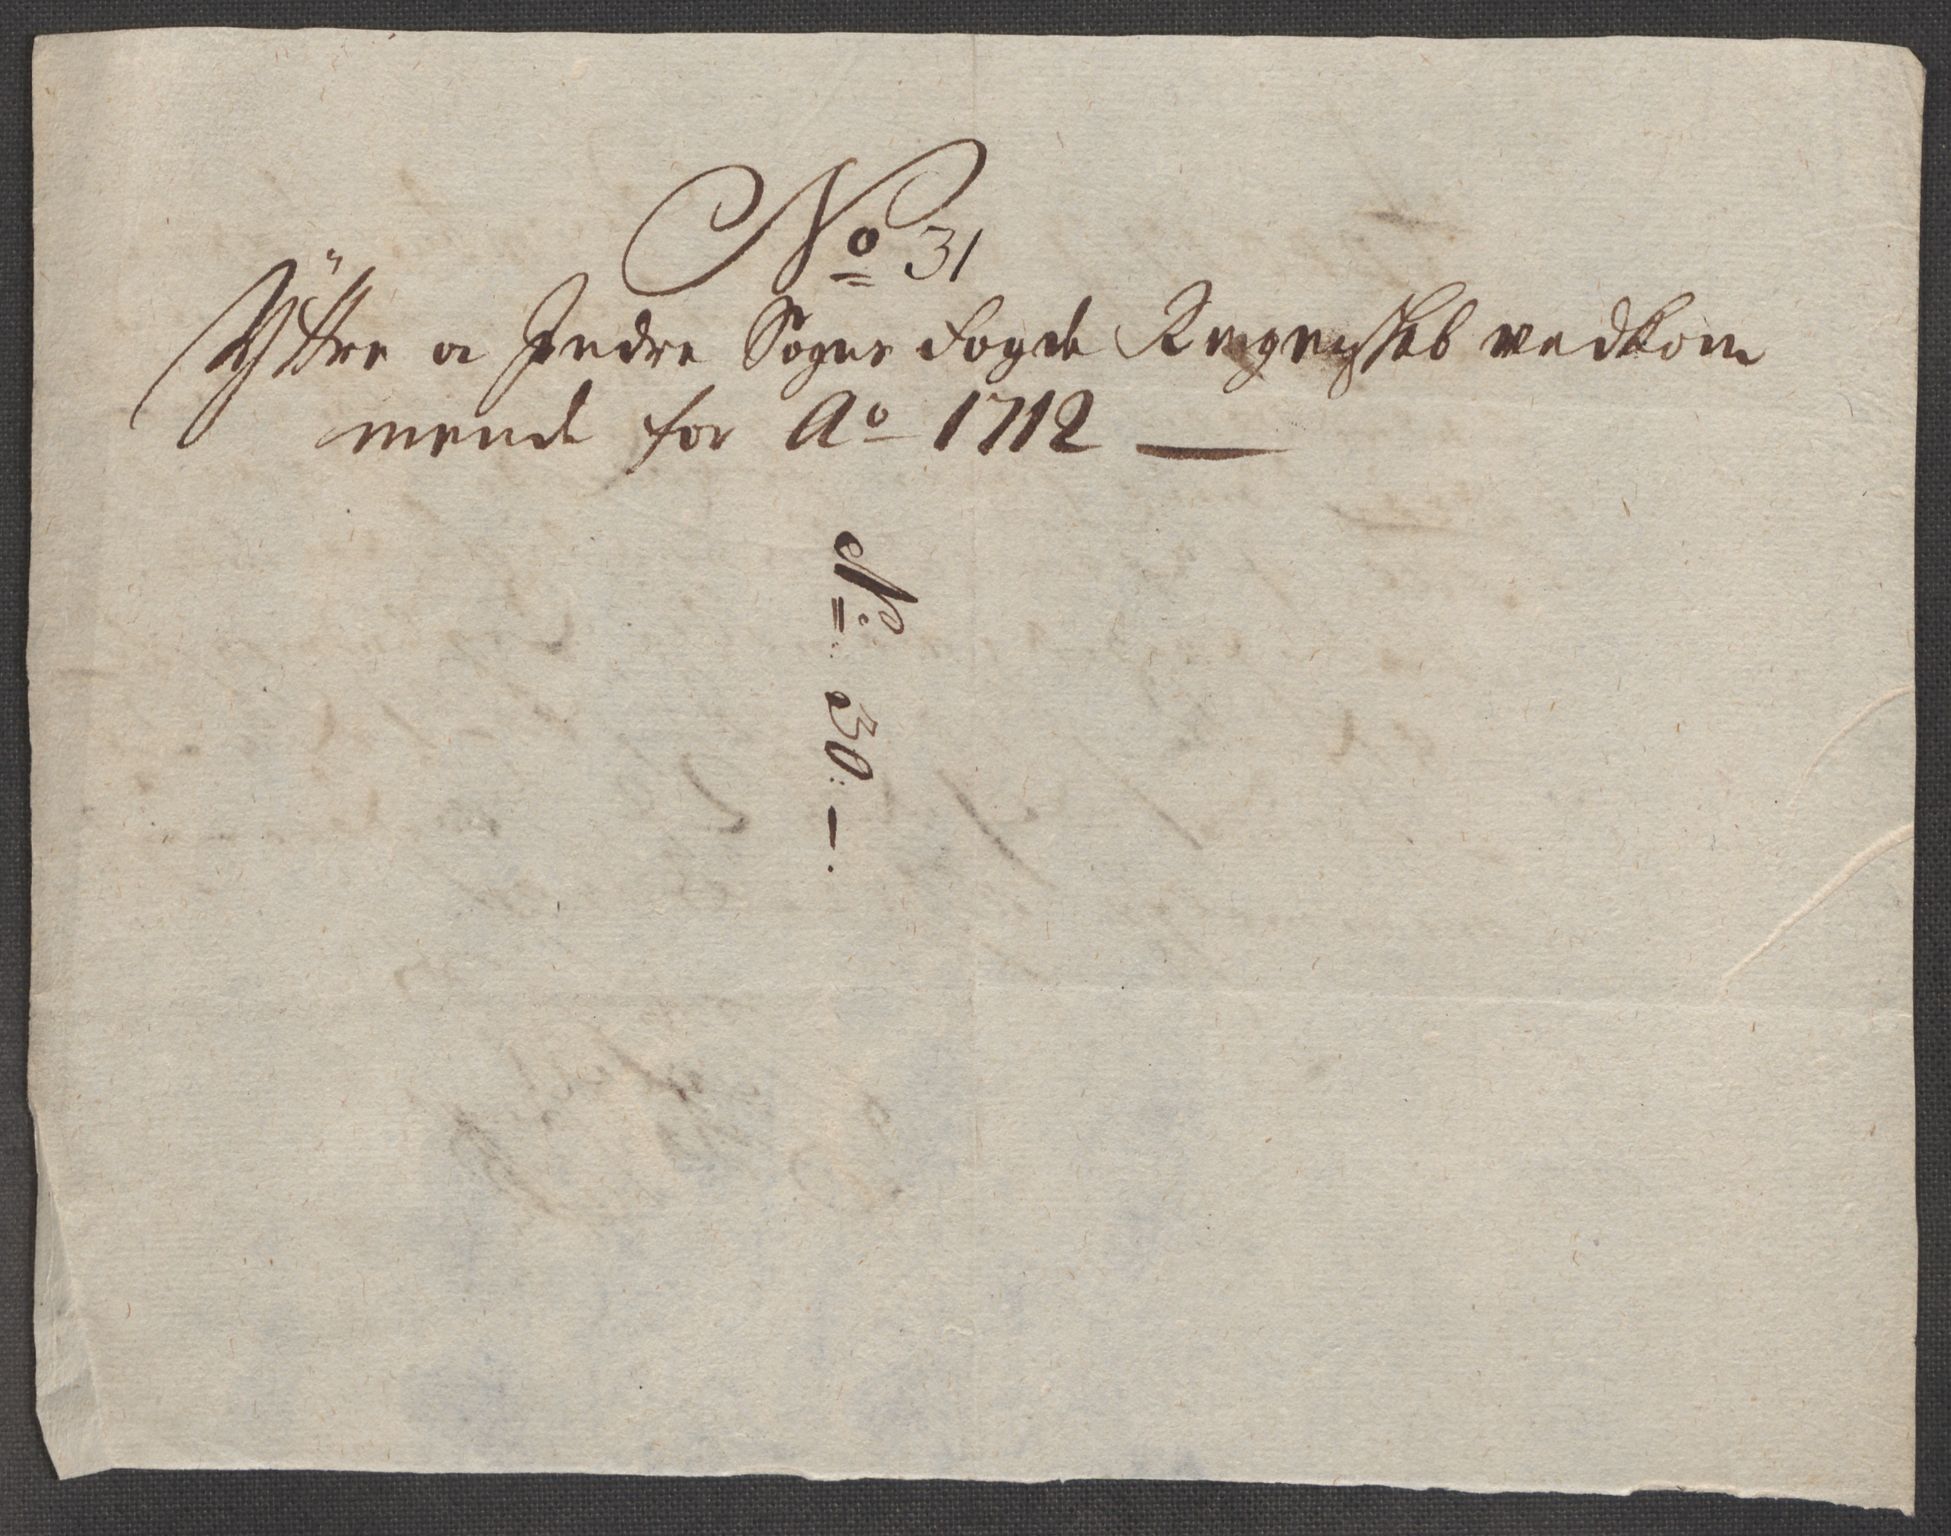 No 31
Yttre oc Indre Sogns Fogde Regenskab vedkom
mende for Ao 1712
No: 30: